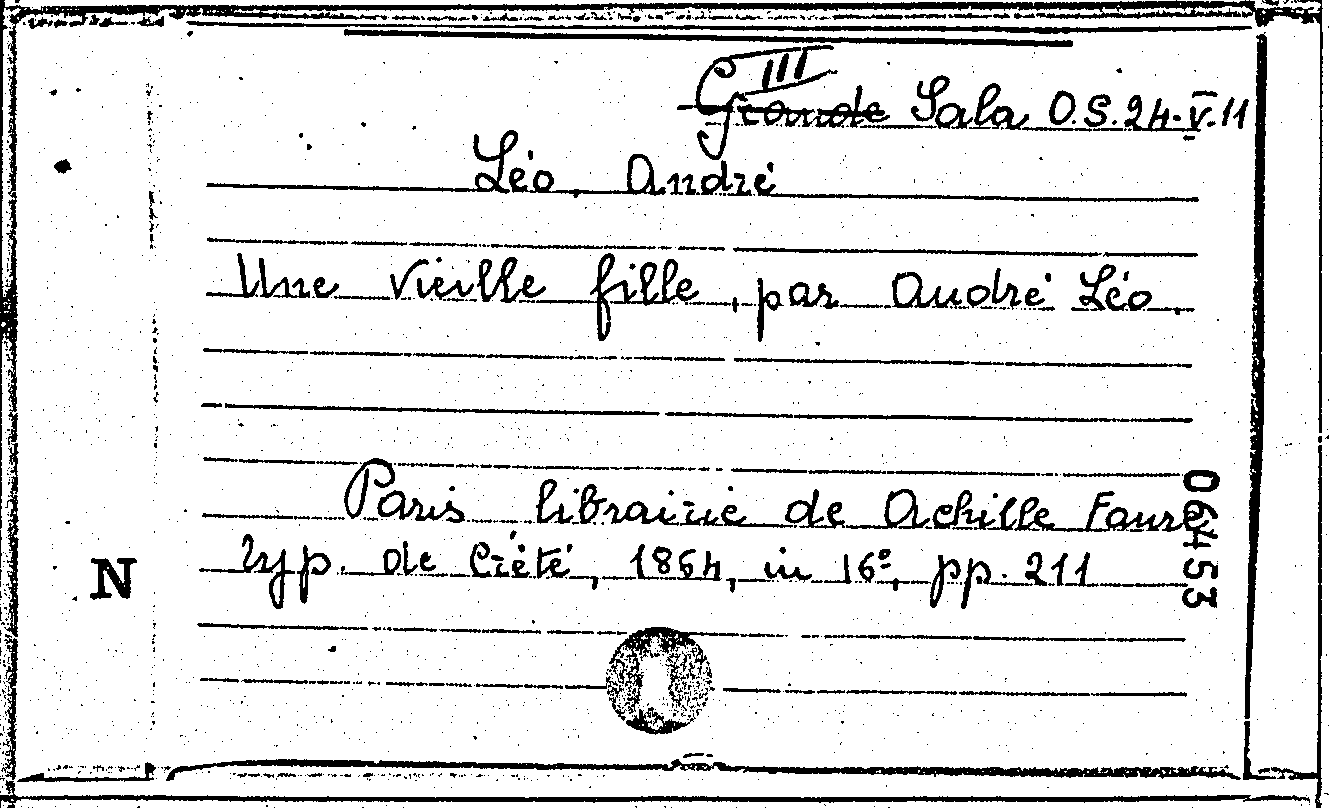 III
Grande Sala O.S. 24.V.11
Léo, André
Une vieille fille, par André Léo.
Paris librairie de Achille Faure
typ. de Crété, 1864, in 16º, pp. 211
06453
N